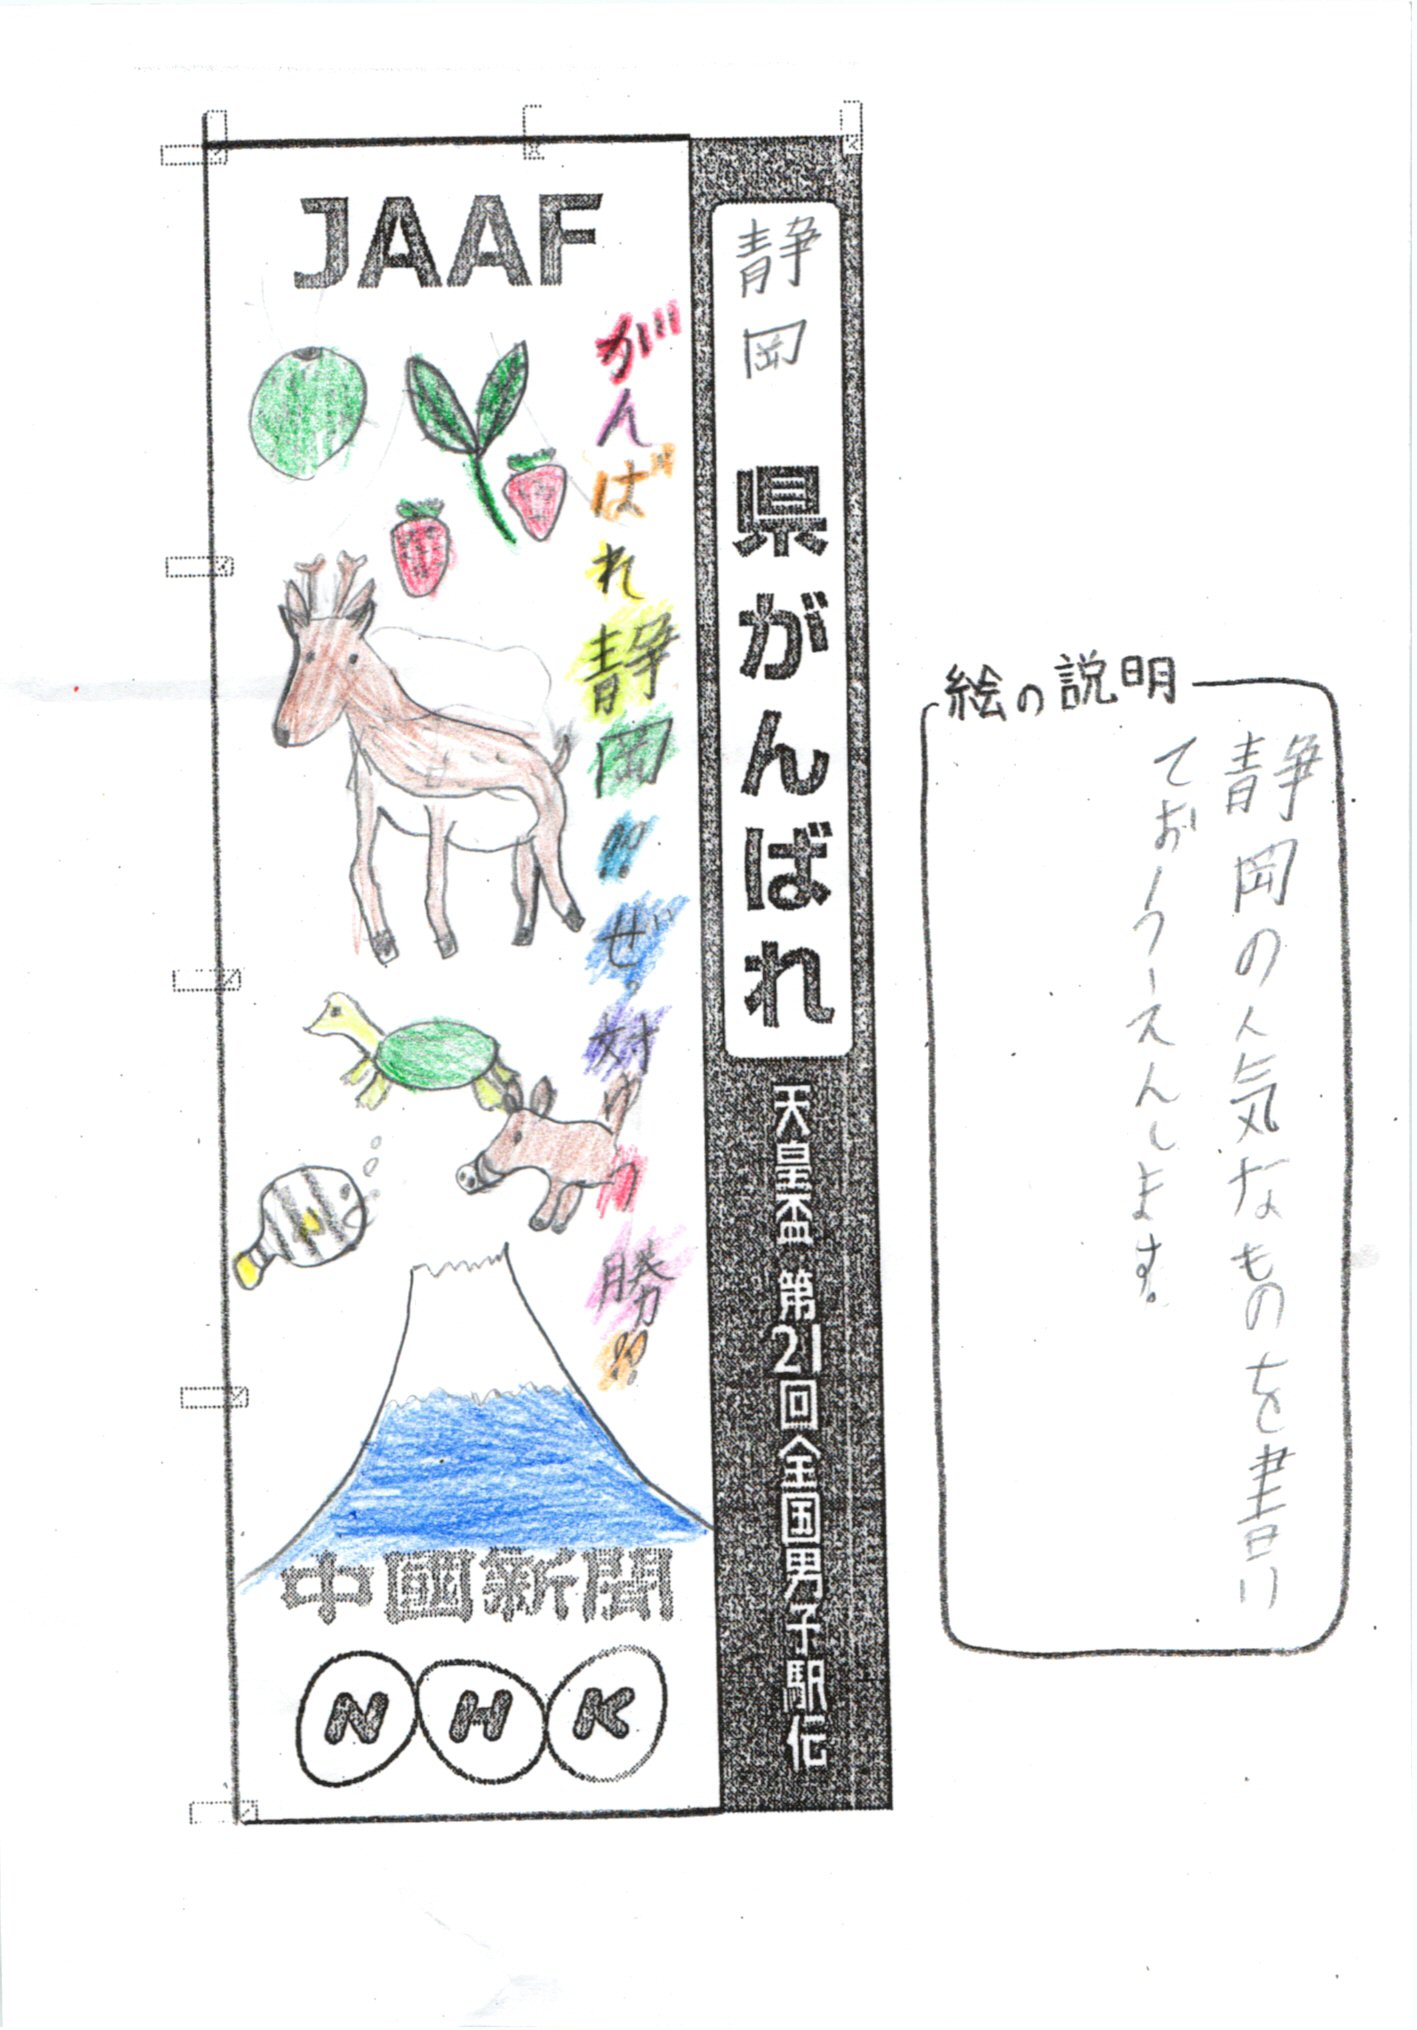 JAAF
がんばれ静岡!!ぜ。対いつ勝!!
中國新聞
NHK
静岡 県がんばれ
天皇盃 第21回全国男子駅伝
絵の説明
静岡の人気なものを書い
ておーうーえんします。